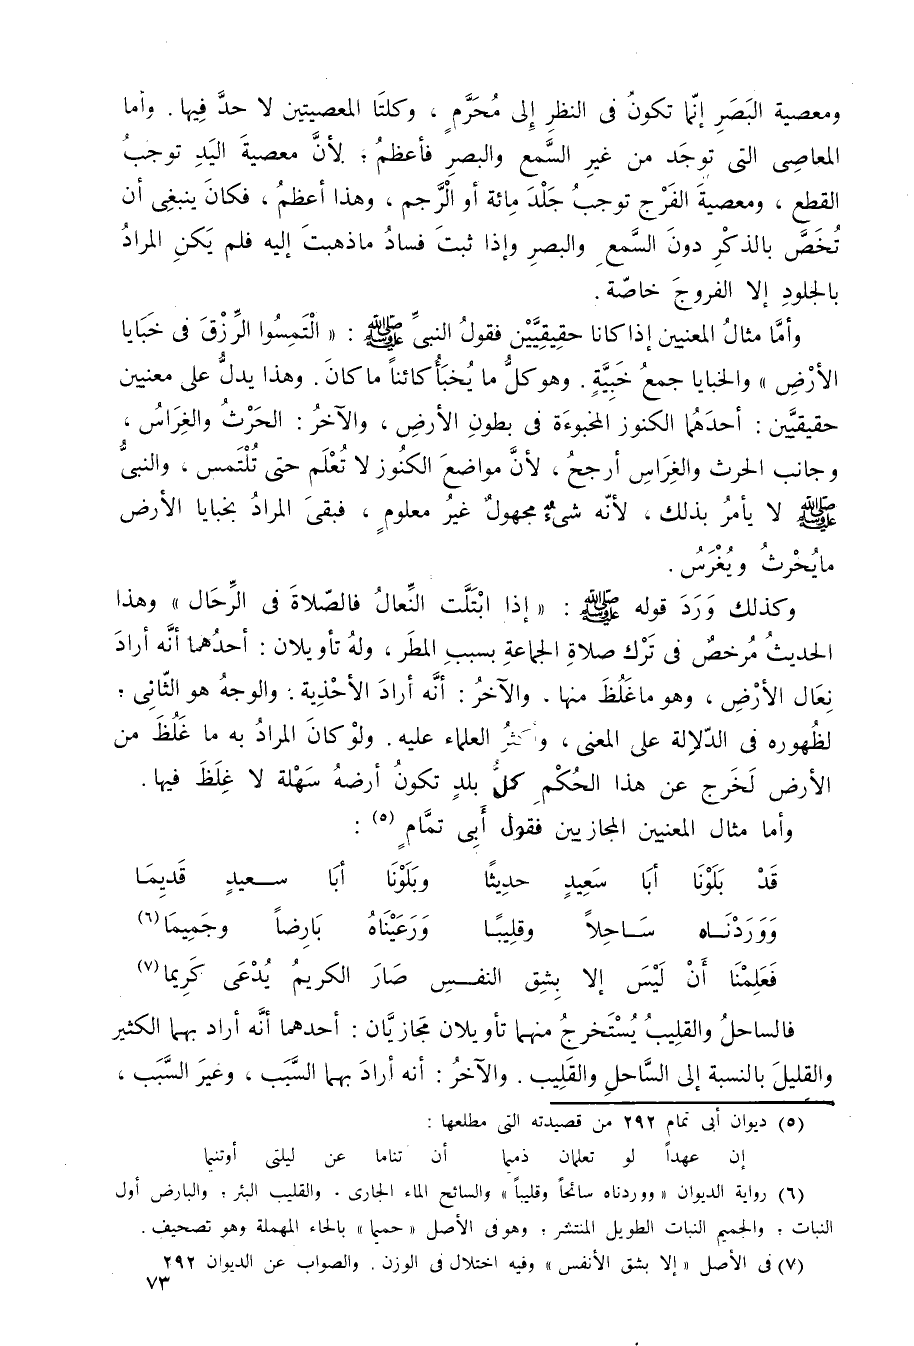 ومعصية البَصَرِ إنّما تكونُ فى النظرِ إلى مُحَرَّمٍ ، وكلتَا المعصيتين لا حدَّ فيها . وأما
المعاصِى التى توجَد من غيرِ السَّمع والبصرِ فأعظمُ ؛ لأنَّ معصيةَ اليَدِ توجبُ
القطع ، ومعصيةَ الفَرْجِ توجبُ جَلْدَ مِائة أو الْرَّجم ، وهذا أعظمُ ، فكانَ ينبغِى أن
تُخَصَّ بالذكْرِ دونَ السَّمعِ والبصرِ وإذا ثبتَ فسادُ ماذهبتَ إليه فلم يَكنِ المرادُ
بالجلودِ إلا الفروجَ خاصّة .
وأمَّا مثالُ المعنيين إذا كانا حقيقِيَّيْن فقولُ النبىِّ ﷺ : « الْتَمِسُوا الرِّزْقَ فى خَبَايا
الأرْضِ » والخبايا جمعُ خَبِيَّةٍ . وهو كلُّ ما يُخبَأُ كائناً ما كانَ . وهذا يدلُّ على معنيين
حقيقيَّين : أحدَهُما الكنوز المخبوءَة فى بطونِ الأرضِ ، والآخرُ : الحَرْثُ والغِرَاسُ ،
وجانب الحرث والغِرَاسِ أرجحُ ، لأنَّ مواضعَ الكنُوز لا تُعْلَم حتى تُلْتَمس ، والنبىُّ
ﷺ لا يأمرُ بذلك ، لأنّه شىءٌ مجهولٌ غيرُ معلومٍ ، فبقىَ المرادُ بخبايا الأرض
مايُحْرثُ ويُغْرَسُ .
وكذلك وَرَدَ قوله ﷺ : « إذا ابْتَلَّت النِّعالُ فالصّلاةَ فى الرِّحَال » وهذا
الحديثُ مُرخصٌ فى تَرْك صلاةِ الجماعةِ بسببِ المطَر ، ولهُ تأويلان : أحدُهما أنَّه أرادَ
نِعَال الأرْضِ ، وهو ما غَلُظَ منها . والآخرُ : أنَّه أرادَ الأحْذية . والوجهُ هو الثّانى ؛
لظُهوره فى الدّلالة على المعنى ، وأكثرُ العلماء عليه . ولوْ كانَ المرادُ به ما غَلُظَ من
الأرض لَخَرج عن هذا الحُكْمِ كلُّ بلدٍ تكونُ أرضهُ سَهْلة لا غِلَظَ فيها .
وأما مثال المعنيين المجازيين فقول أَبِى تمَّامٍ (٥) :
قَدْ بَلَوْنَا أبَا سَعِيدٍ حديثًا وبَلَوْنَا أبَا سعيدٍ قَديِمَا
وَوَرَدْنَاه سَاحِلاً وقلِيبًا وَرَعَيْنَاهُ بَارِضاً وجَمِيمَا(٦)
فَعَلِمْنَا أَنْ لَيْسَ إلا بِشِق النفسِ صَارَ الكريمُ يُدْعَى كَرِيما(٧)
فالساحلُ والقلِيبُ يُسْتَخرجُ منهما تأويلان مجازيَّان : أحدهما أنَّه أراد بهما الكثير
والقليلَ بالنسبة إلى السَّاحلِ والقَلِيب . والآخرُ : أنه أرادَ بهما السَّبَب ، وغيرَ السَّبَب ،
(٥) ديوان أبى تمام ٢٩٢ من قصيدته التى مطلعها :
إن عهداً لو تعلمان ذميما أن تناما عن ليلتى أوتنيما
(٦) رواية الديوان « ووردناه سائحاً وقليباً » والسائح الماء الجارى . والقليب البئر ؛ والبارض أول
النبات ؛ والجميم النبات الطويل المنتشر ؛ وهو فى الأصل « حميما » بالحاء المهملة وهو تصحيف .
(٧) فى الأصل « إلا بشق الأنفس » وفيه اختلال فى الوزن . والصواب عن الديوان ٢٩٢
٧٣